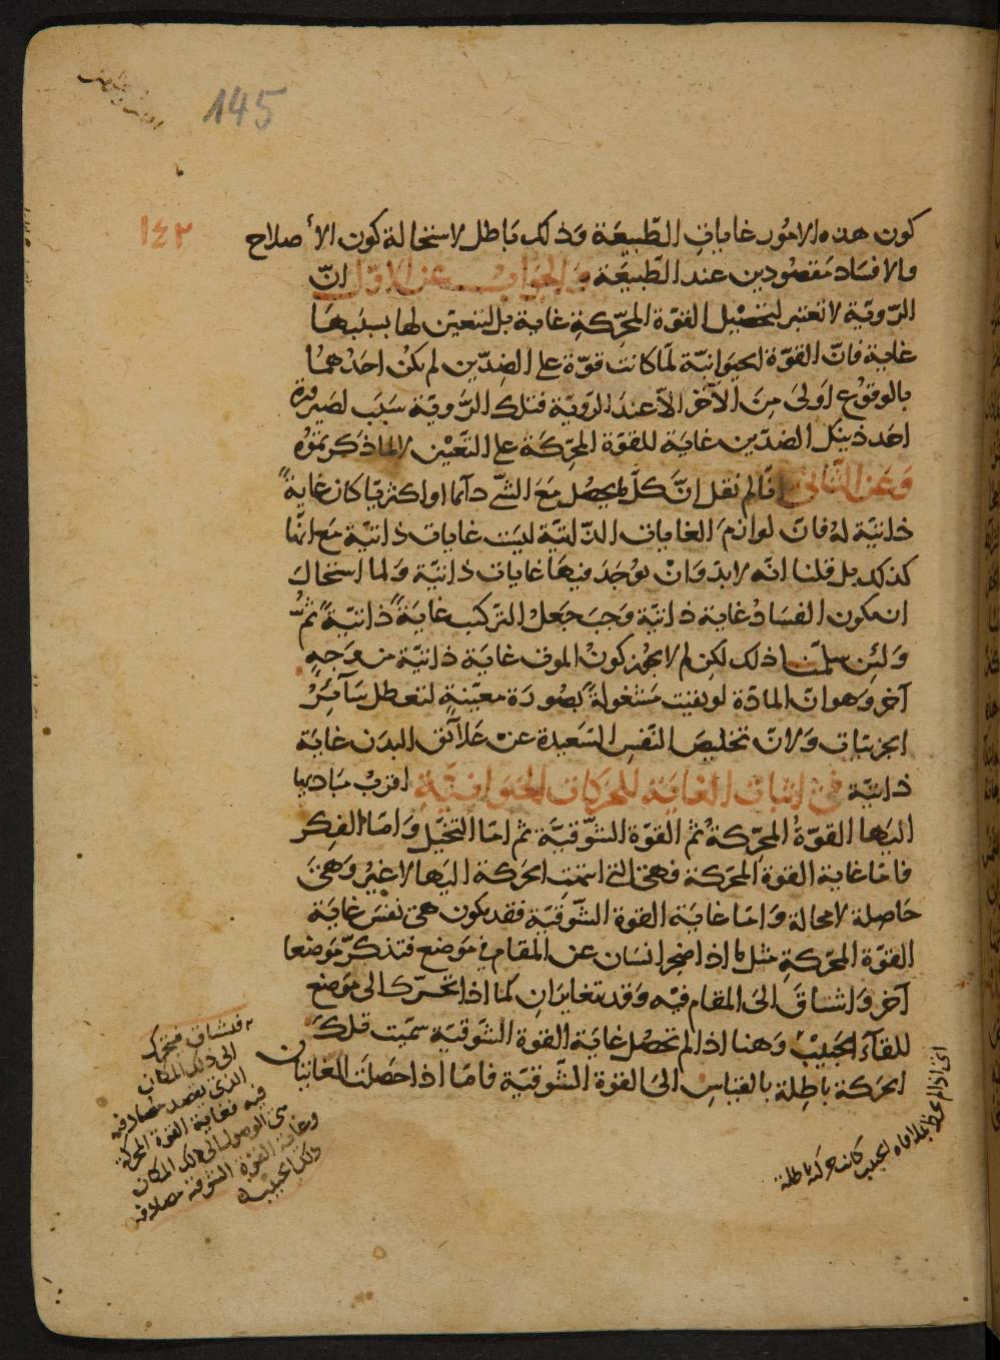 145
١٤٢
كون هذه الامور غايات الطّبيعَة وَذلك بَاطل لاستحالة كون الأصلاح
والافسَاد مَقصُودين عند الطّبيعَة وَالجوَابُ عن الاوّل انّ
الرّويّة لا تعتبر لتحصيل القوّة المحرّكةِ غايةً بل لتعيّن لها بسبَبهَا
غاية فانّ القوّة الحيوَانيّة لمّا كانت قوّة على الضدّين لم يكن احَدُهمُا
بالوقوُع اَولى مِنَ الآخر الاّ عندَ الرّويّة فتلك الرّوِيّة سَبَب لصَيرورة
احَد ذينك الضدّين غايَة للقوّة المحرّكة على التعيّن لا لما ذكرتموُه
وَعَن الثّانىِ انّا لم نقل انَّ كلّ ما يحصُل مَعَ الشّئ دآئما او اكثريّا كان غايةً
ذاتيّة لهُ فانّ لوازمَ الغايات الذّاتيّة ليسَت غايات ذاتيّة مَع انّها
كذلك بل قلنا انّه لا بدّ وَانْ يوُجَدَ فيهَا غايات ذاتيّة وَلما استحالَ
ان يكون الفسَادُ غاية ذاتيّة وَجبَ جَعلُ التركّب غايَةً ذاتيّةً ثمّ
وَلئِن سلّمنا ذلك لكن لم لا يجوُز كونُ الموت غايَة ذاتيّة من وَجهٍ
آخر وَهو انّ المادّة لو بقيَت مَشغولةً بصُورَة معيّنةٍ لتعطّل سَآئرُ
الجزئيات وَلانّ تخليصَ النّفس السّعيدة عنْ عَلآئق البدَن غايَة
ذاتيّة فىْ اثبات الغايَة للحركات الحيَوانيّةِ اقربُ مَباديها
اليَها القوّةُ المحرّكةُ ثمّ القوّة الشّوقيَّة ثم امّا التخيّل وَامّا الفِكر
فامّا غاية القوة المحركة فهى التى انتهت الحركة اليَها لا غيرُ وَهىَ
حَاصلة لا محالة وَامّا غايَة القوة الشّوقيّة فقد يكون هىَ نفسَ غايَة
القوّة المحرّكةِ مثل ما اذا ضجر انسَان عن المقام فى مَوضع فتذكّر مَوضعا
آخر وَاشتاقَ الىَ المقام فيْه وَقد تتغايرَانِ كما اذا تحرّك الى مَوضع
للقآءَ الحَبيْبَ وَهنا اذا لم تحصُل غايَة القوة الشّوقيّة سمّيَت تلكَ
الحركة باطِلة بالقيَاسِ الىَ القوّة الشّوقيّة فامّا اذا حَصَلتَ الغايَتان
فيشتاق فيتحرّك
الى ذلك المكان
الذى يقصد مصادفته
فيه فغاية القوة المحركة
هى الوصول الى ذلك المكان
وغاية القوّة الشوقية مصادفة
ذلك الحبيب
اى اذا لم يحظ بملاقاه الحبيب كانت حركة باطلة